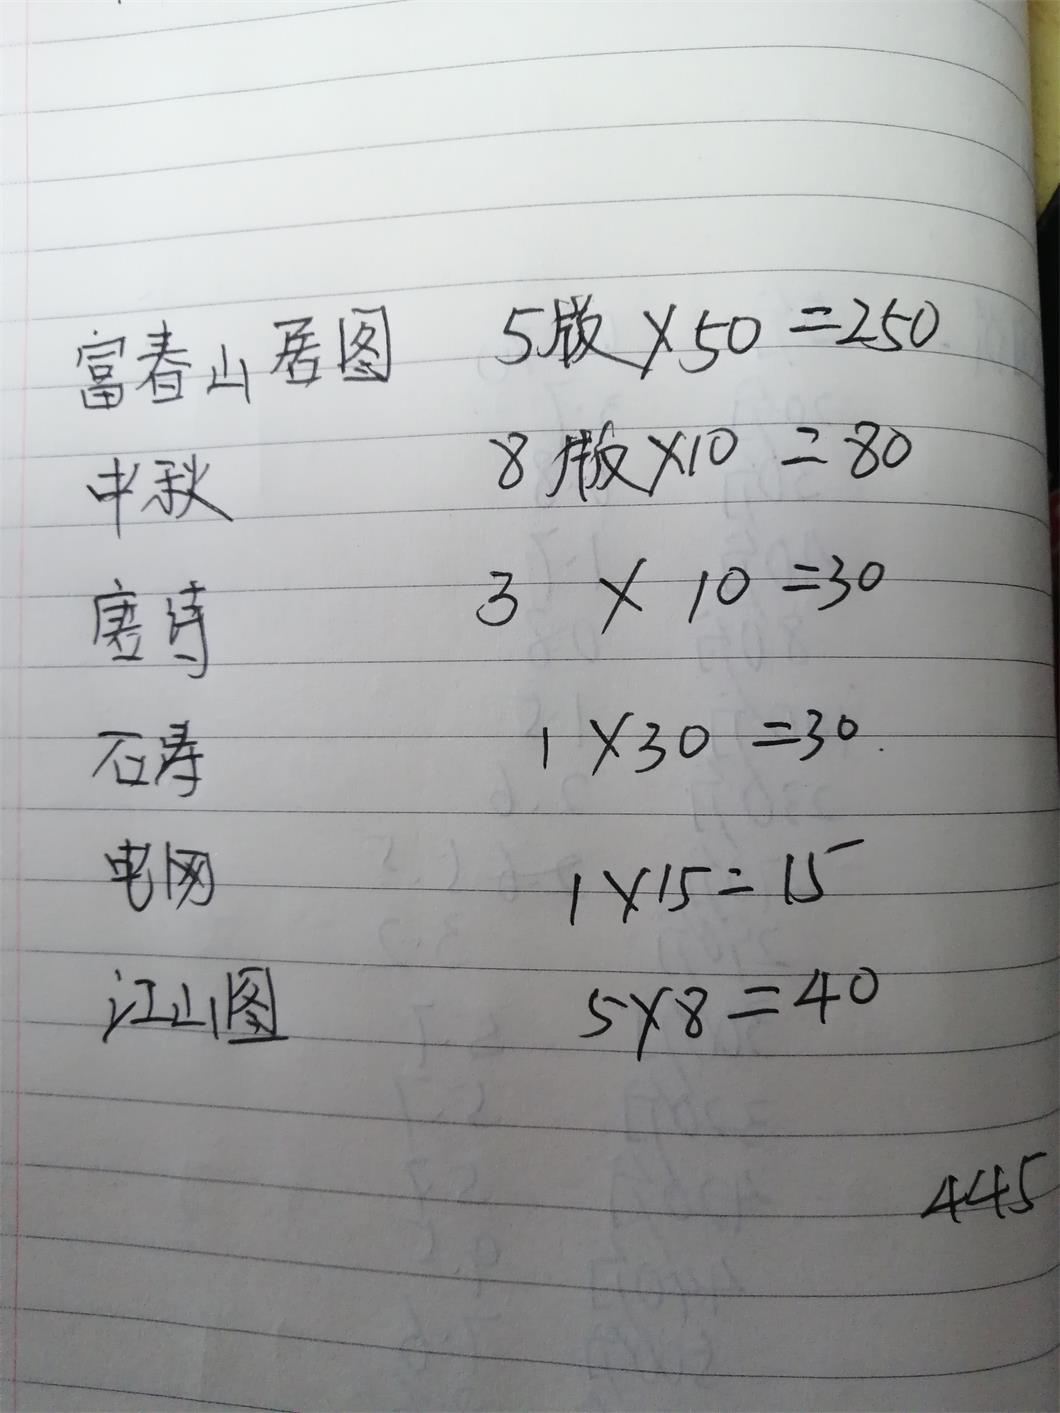 富春山居图 5版×50=250
中秋 8版×10=80
唐诗 3 × 10=30
石涛 1×30=30
电网 1×15=15
江山图 5×8=40
445